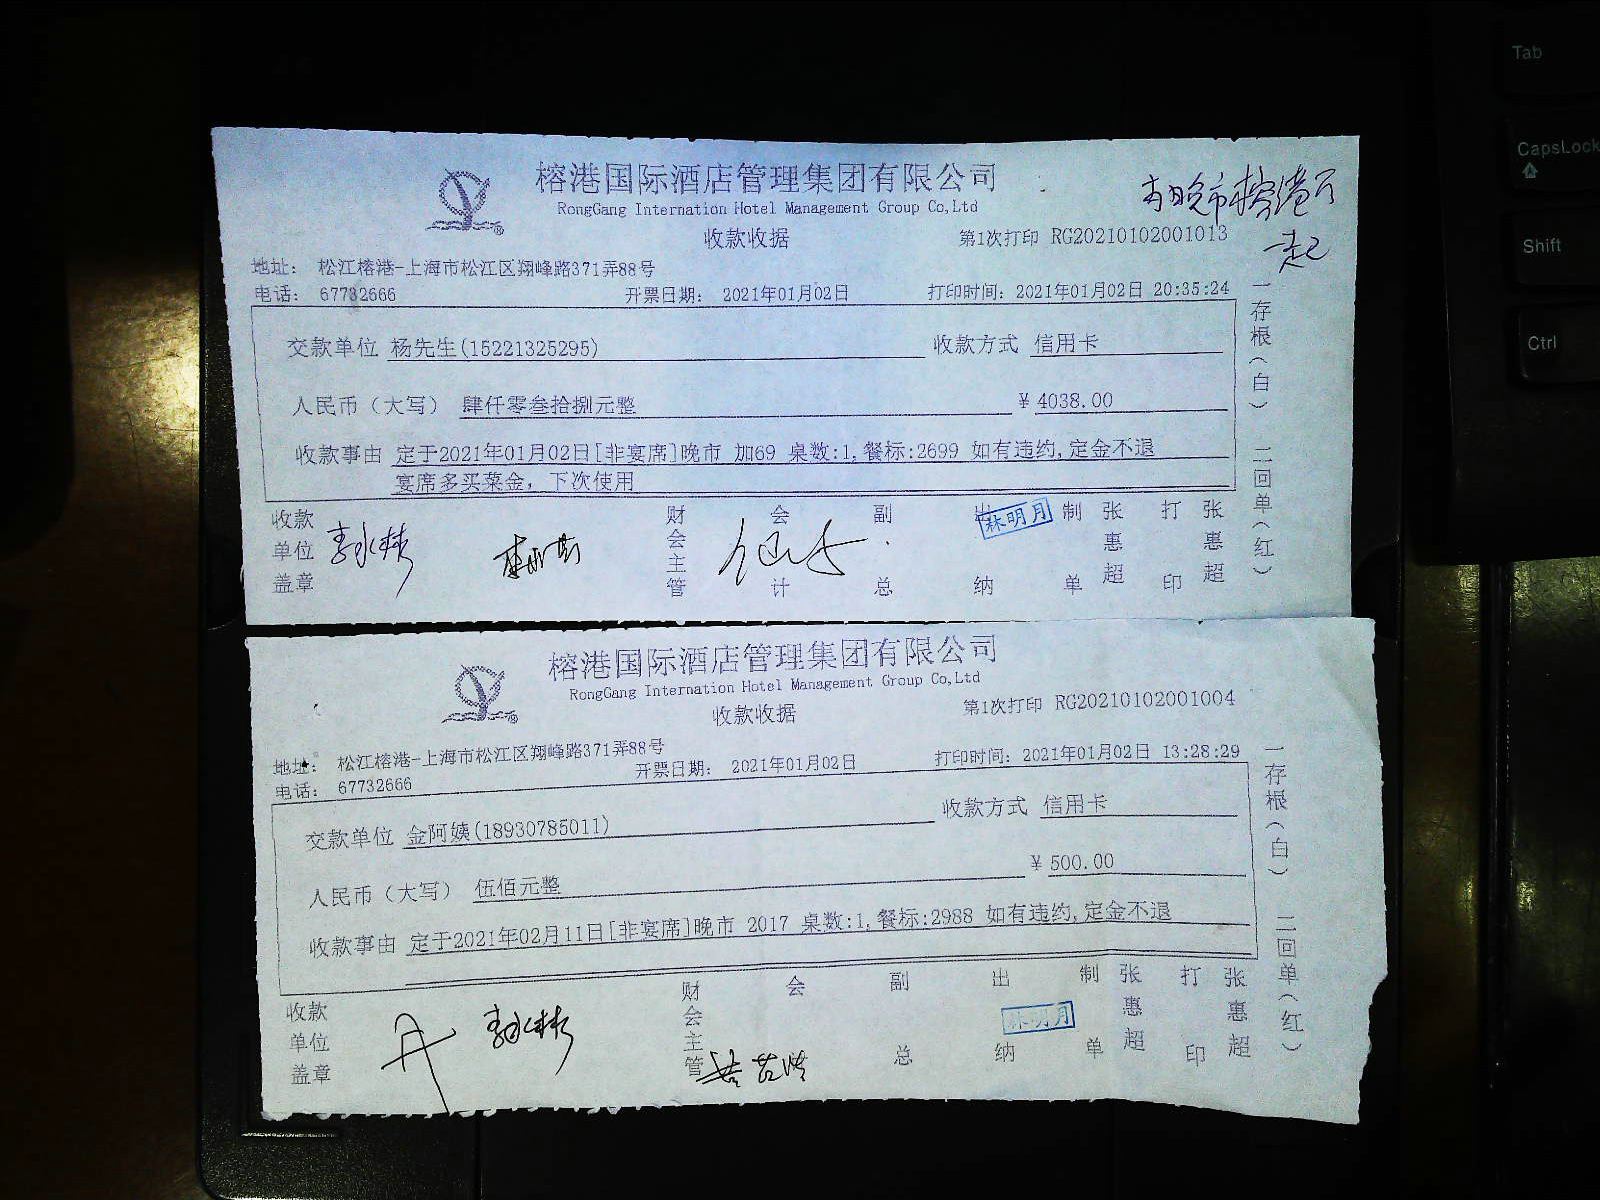 榕港国际酒店管理集团有限公司
RongGang Internation Hotel Management Group Co,Ltd
收款收据
第1次打印 RG20210102001013
一起
地址： 松江榕港-上海市松江区翔峰路371弄88号
电话： 67732666
开票日期： 2021年01月02日
打印时间：2021年01月02日 20:35:24
交款单位 杨先生(15221325295)
收款方式 信用卡
人民币（大写） 肆仟零叁拾捌元整
¥ 4038.00
收款事由 定于2021年01月02日[非宴席]晚市 加69 桌数:1,餐标:2699 如有违约,定金不退
宴席多买菜金，下次使用
一存根（白） 二回单（红）
收款单位盖章
财会主管
会计
副总
出纳
林明月
制单
张惠超
打印
张惠超
榕港国际酒店管理集团有限公司
RongGang Internation Hotel Management Group Co,Ltd
收款收据
第1次打印 RG20210102001004
地址： 松江榕港-上海市松江区翔峰路371弄88号
电话： 67732666
开票日期： 2021年01月02日
打印时间：2021年01月02日 13:28:29
交款单位 金阿姨(18930785011)
收款方式 信用卡
人民币（大写） 伍佰元整
¥ 500.00
收款事由 定于2021年02月11日[非宴席]晚市 2017 桌数:1,餐标:2988 如有违约,定金不退
一存根（白） 二回单（红）
收款单位盖章
财会主管
会
副总
出纳
林明月
制单
张惠超
打印
张惠超
Tab
CapsLock
Shift
Ctrl